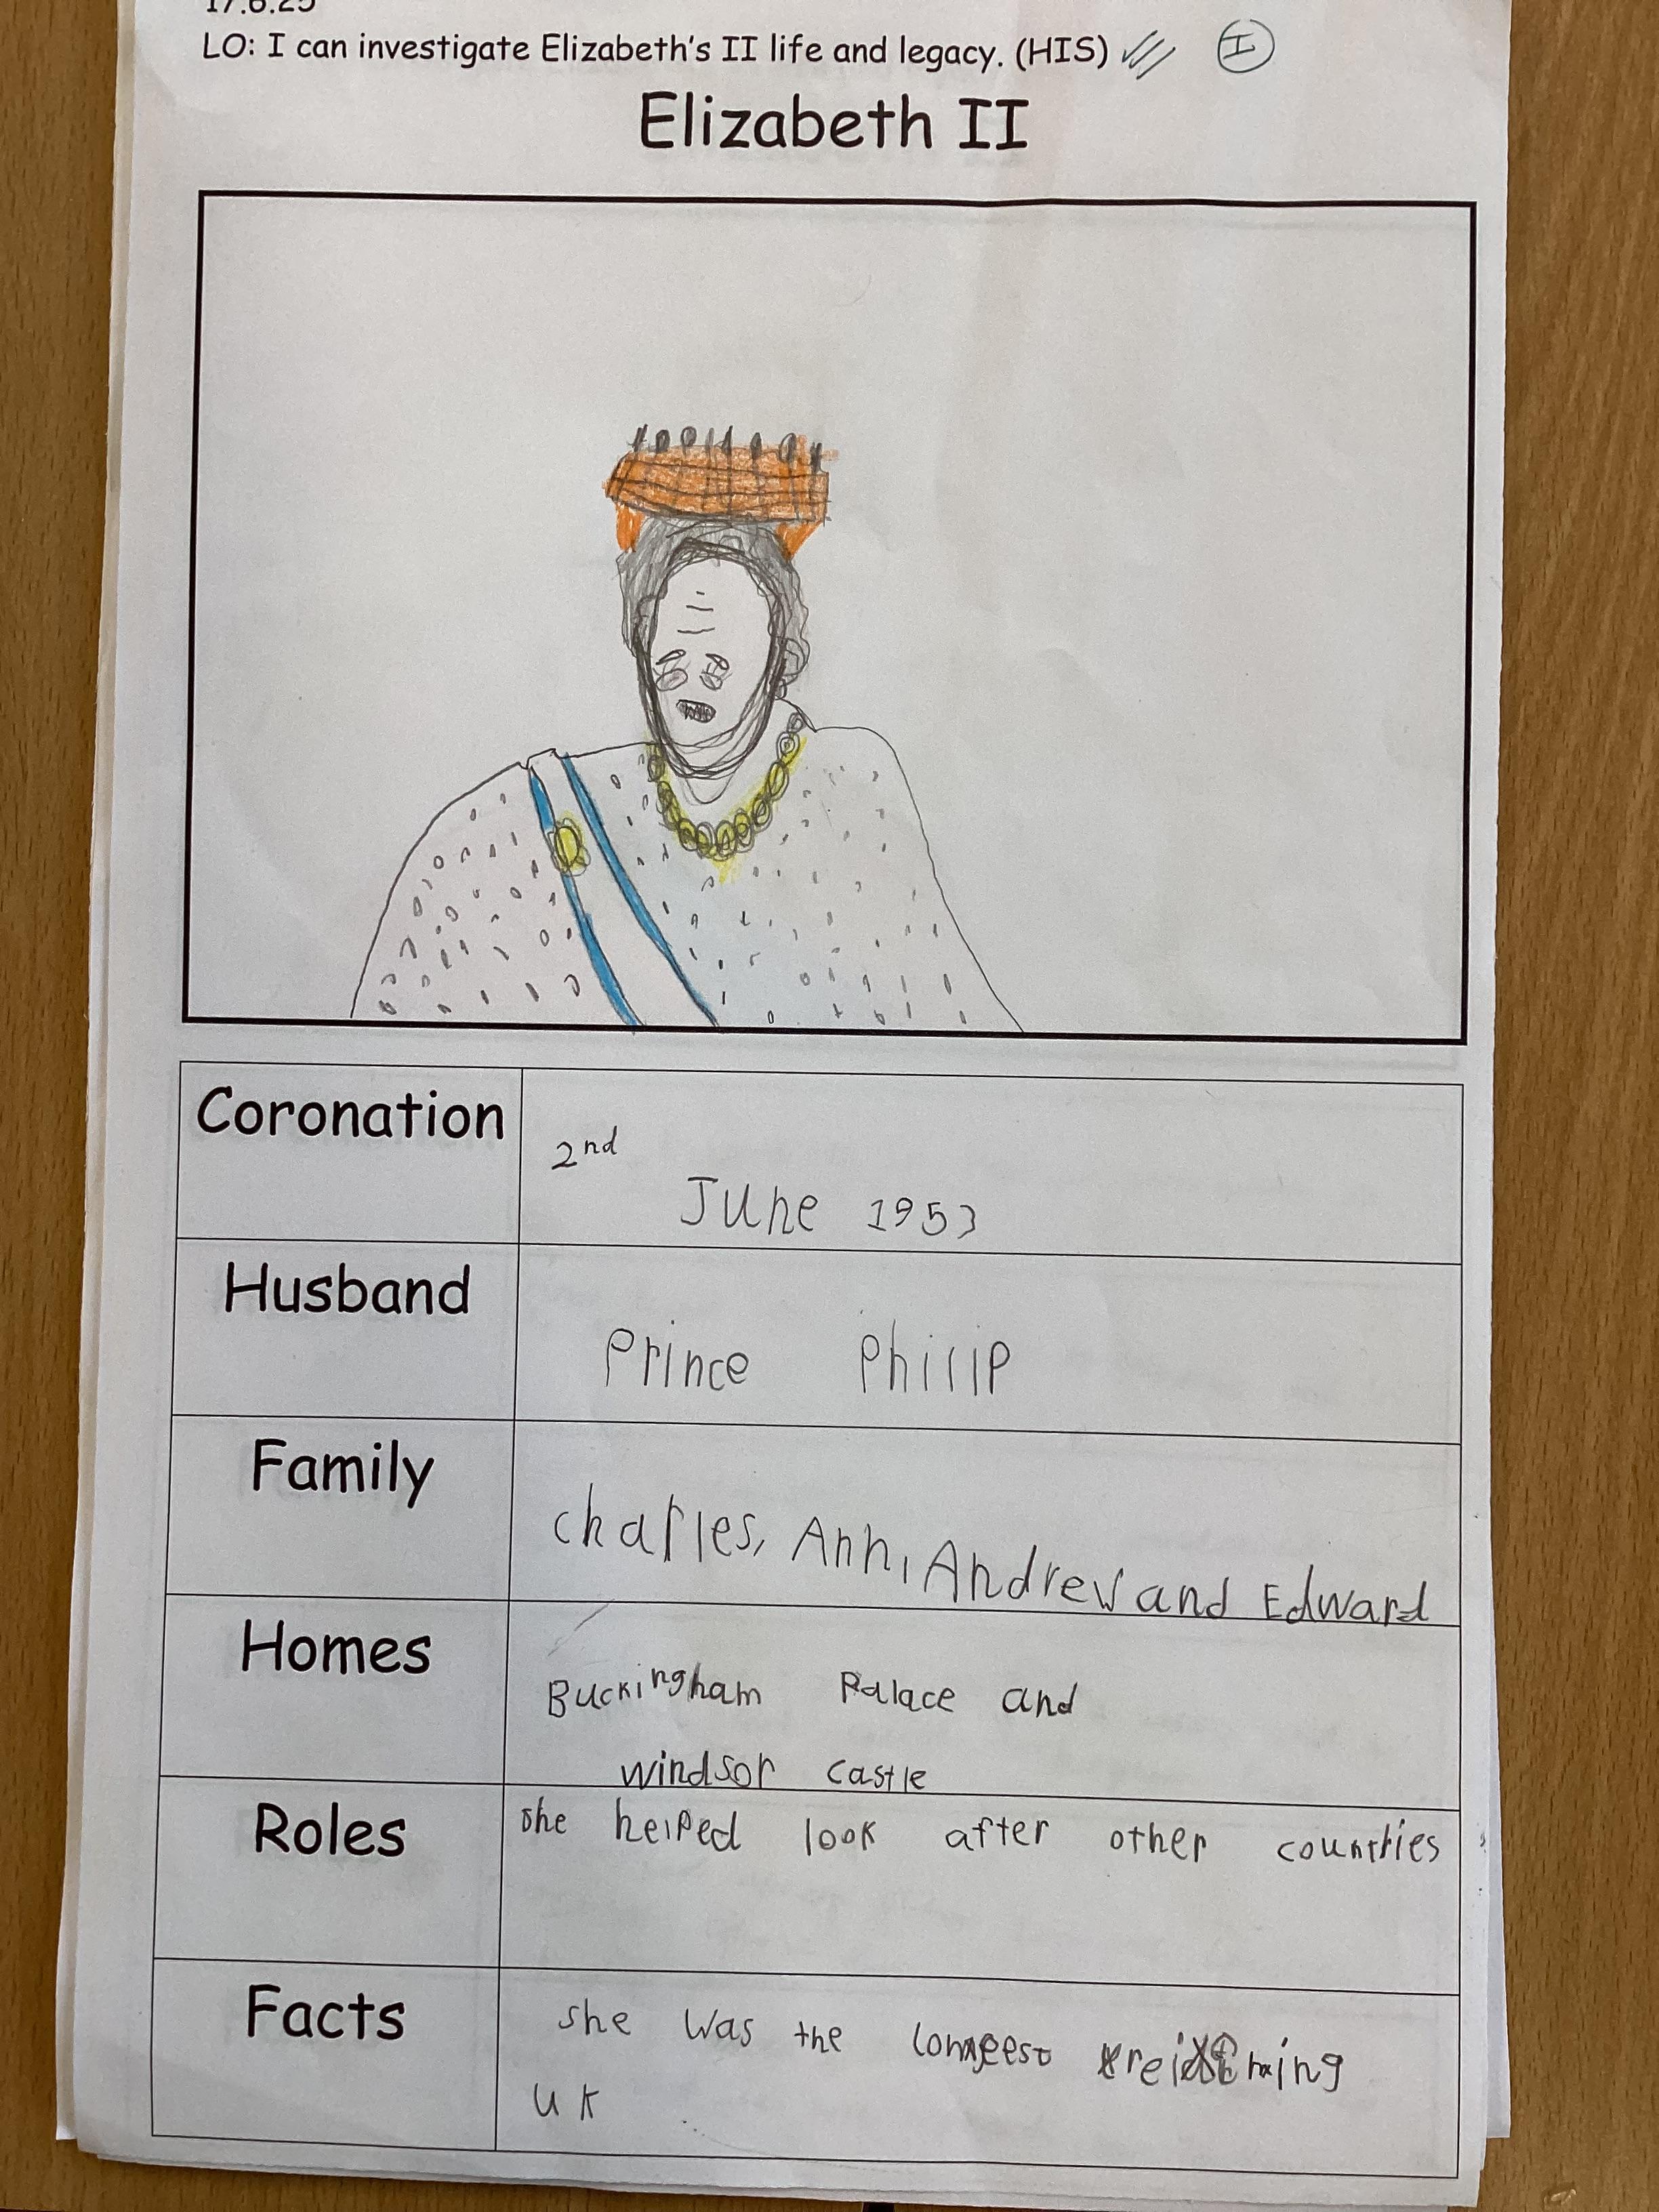 17.6.25
LO: I can investigate Elizabeth's II life and legacy. (HIS) I
Elizabeth II
Coronation
2nd
June 1953
Husband
Prince Philip
Family
Charles, Ann, Andrew and Edward
Homes
Buckingham Palace and
windsor castle
Roles
she helped look after other countries
Facts
she was the longest
UK